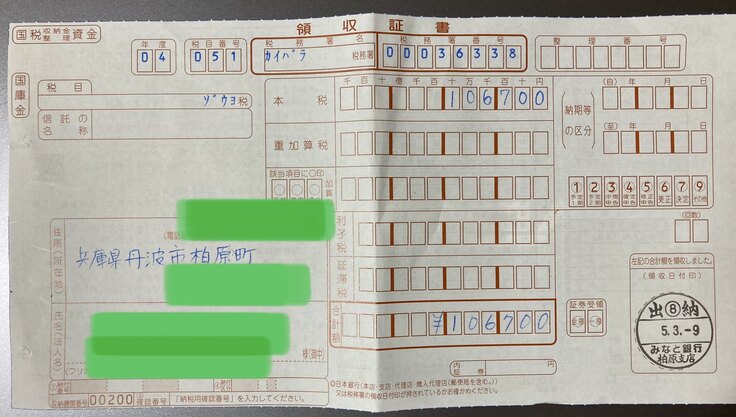 国税収納金整理資金
領収証書
国庫金
年度
04
税目番号
051
税務署名
カイバラ 税務署
税務署番号
00036338
整理番号
税目
ゾウヨ税
信託の名称
千百十億千百十万千百十円
本税
106700
重加算税
該当項目に○印
加算
利子税
延滞税
合計額
¥106700
納期等の区分
(自) 年 月 日
(至) 年 月 日
1 予定1期
2 予定2期
3 中間申告
4 確定申告
5 修正申告
6 更正
7 決定
9 その他
(回数)
住所(所在地)
(電話
兵庫県丹波市柏原町
氏名(法人名)
様(御中)
(フリガ
証券受領
全部 一部
内証券
円
左記の合計額を領収しました。
(領収日付印)
出⑧納
5.3.-9
みなと銀行
柏原支店
納付番号
収納機関番号 00200 確認番号 「納税用確認番号」を入力してください。
◎日本銀行(本店・支店・代理店・歳入代理店(郵便局を含む。))
又は税務署の領収日付印が押されているかお確かめください。